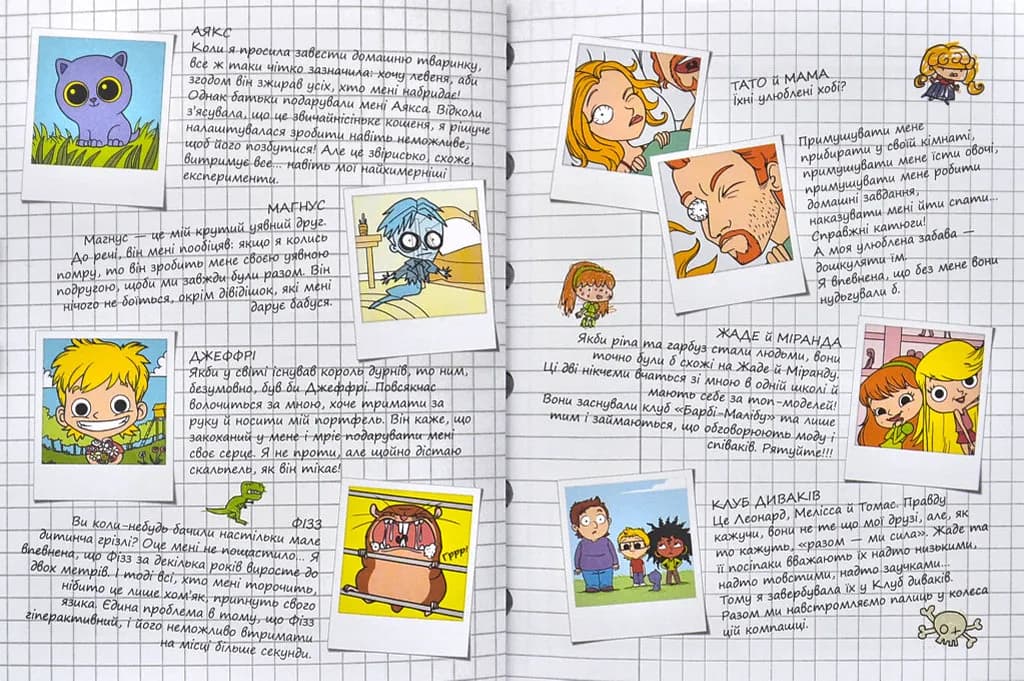 АЯКС
Коли я просила завести домашню тваринку,
все ж таки чітко зазначила: хочу левеня, аби
згодом він зжирав усіх, хто мені набридає!
Однак батьки подарували мені Аякса. Відколи
з'ясувала, що це звичайнісіньке кошеня, я рішуче
налаштувалася зробити навіть неможливе,
щоб його позбутися! Але це звірисько, схоже,
витримує все... навіть мої найхимерніші
експерименти.
МАГНУС
Магнус — це мій крутий уявний друг.
До речі, він мені пообіцяв: якщо я колись
помру, то він зробить мене своєю уявною
подругою, щоби ми завжди були разом. Він
нічого не боїться, окрім дівідішок, які мені
дарує бабуся.
ДЖЕФФРІ
Якби у світі існував король дурнів, то ним,
безумовно, був би Джеффрі. Повсякчас
волочиться за мною, хоче тримати за
руку й носити мій портфель. Він каже, що
закоханий у мене і мріє подарувати мені
своє серце. Я не проти, але щойно дістаю
скальпель, як він тікає!
ФІЗЗ
Ви коли-небудь бачили настільки мале
дитинча грізлі? Оце мені не пощастило... Я
впевнена, що Фізз за декілька років виросте до
двох метрів. І тоді всі, хто мені торочить,
нібито це лише хом'як, припнуть свого
язика. Єдина проблема в тому, що Фізз
гіперактивний, і його неможливо втримати
на місці більше секунди.
Гррр!
ТАТО й МАМА
Їхні улюблені хобі?
Примушувати мене
прибирати у своїй кімнаті,
примушувати мене їсти овочі,
примушувати мене робити
домашні завдання,
наказувати мені йти спати...
Справжні катюги!
А моя улюблена забава —
дошкуляти їм.
Я впевнена, що без мене вони
нудьгували б.
ЖАДЕ й МІРАНДА
Якби ріпа та гарбуз стали людьми, вони
точно були б схожі на Жаде й Міранду.
Ці дві нікчеми вчаться зі мною в одній школі й
мають себе за топ-моделей!
Вони заснували клуб «Барбі-Малібу» та лише
тим і займаються, що обговорюють моду і
співаків. Рятуйте!!!
КЛУБ ДИВАКІВ
Це Леонард, Мелісса й Томас. Правду
кажучи, вони не те що мої друзі, але, як
то кажуть, «разом — ми сила». Жаде та
її посіпаки вважають їх надто низькими,
надто товстими, надто заучками...
Тому я завербувала їх у Клуб диваків.
Разом ми навстромляємо палиць у колеса
цій компашці.